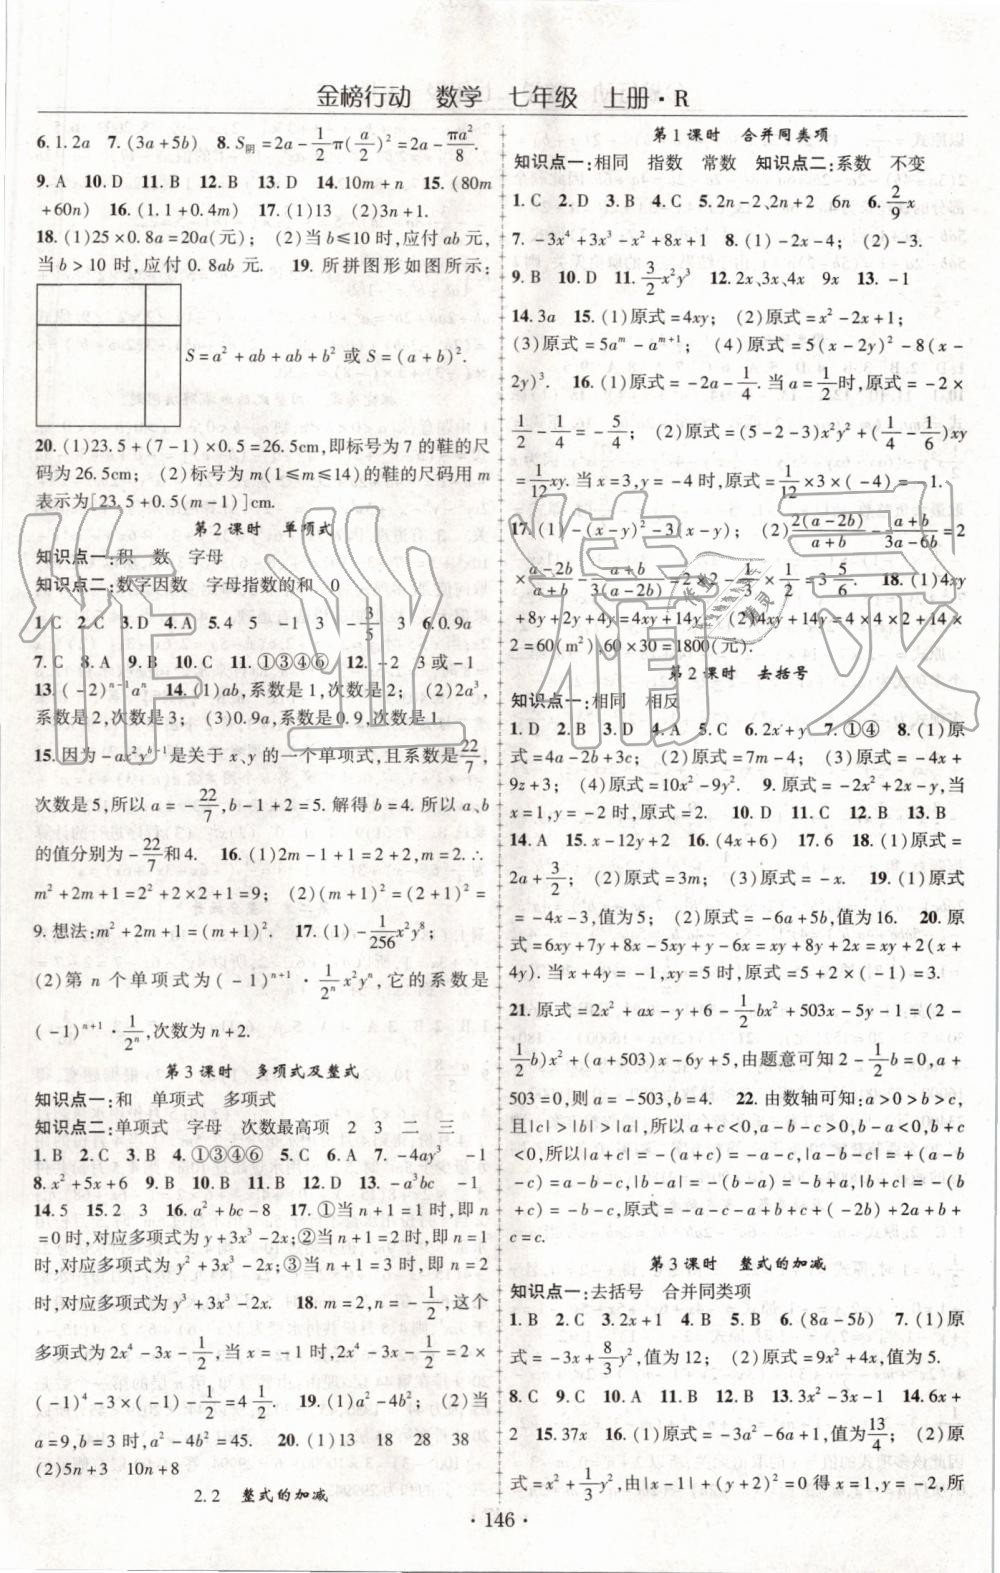 金榜行动 数学 七年级 上册·R
6. 1.2a 7. (3a+5b) 8. S阴=2a-1/2π(a/2)²=2a-πa²/8.
9. A 10. D 11. B 12. B 13. D 14. 10m+n 15. (80m
+60n) 16. (1.1+0.4m) 17. (1)13 (2)3n+1.
18. (1)25×0.8a=20a(元); (2)当b≤10时,应付ab元,
当b>10时,应付0.8ab元. 19. 所拼图形如图所示:
S=a²+ab+ab+b² 或 S=(a+b)².
20. (1)23.5+(7-1)×0.5=26.5cm,即标号为7的鞋的尺
码为26.5cm; (2)标号为m(1≤m≤14)的鞋的尺码用m
表示为[23.5+0.5(m-1)]cm.
第2课时 单项式
知识点一:积 数 字母
知识点二:数字因数 字母指数的和 0
1. C 2. C 3. D 4. A 5. 4 5 -1 3 -3/5 3 6. 0.9a
7. C 8. A 9. B 10. C 11. ①③④⑥ 12. -2 3或-1
13. (-2)ⁿ⁻¹aⁿ 14. (1)ab,系数是1,次数是2; (2)2a³,
系数是2,次数是3; (3)0.9a,系数是0.9,次数是1.
15. 因为-ax²yᵇ⁻¹是关于x、y的一个单项式,且系数是22/7,
次数是5,所以a=-22/7,b-1+2=5. 解得b=4. 所以a、b
的值分别为-22/7和4. 16. (1)2m-1+1=2+2,m=2. ∴
m²+2m+1=2²+2×2+1=9; (2)(m+1)²=(2+1)²=
9. 想法:m²+2m+1=(m+1)². 17. (1)-1/256x²y⁸;
(2)第n个单项式为(-1)ⁿ⁺¹·1/2ⁿx²yⁿ,它的系数是
(-1)ⁿ⁺¹·1/2ⁿ,次数为n+2.
第3课时 多项式及整式
知识点一:和 单项式 多项式
知识点二:单项式 字母 次数最高项 2 3 二 三
1. B 2. C 3. B 4. ①③④⑥ 5. C 6. A 7. -4ay³ -1
8. x²+5x+6 9. B 10. B 11. D 12. D 13. -a³bc -1
14. 5 15. 2 3 16. a²+bc-8 17. ①当n+1=1时,即n=
0时,对应多项式为y+3x³-2x;②当n+1=2时,即n=1
时,对应多项式为y²+3x³-2x;③当n+1=3时,即n=2
时,对应多项式为y³+3x³-2x. 18. m=2,n=-1/2,这个
多项式为2x⁴-3x-1/2,当x=-1时,2x⁴-3x-1/2=2×
(-1)⁴-3×(-1)-1/2=4 1/2. 19. (1)a²-4b²; (2)当
a=9,b=3时,a²-4b²=45. 20. (1)13 18 28 38
(2)5n+3 10n+8
2.2 整式的加减
第1课时 合并同类项
知识点一:相同 指数 常数 知识点二:系数 不变
1. C 2. D 3. B 4. C 5. 2n-2、2n+2 6n 6. 2/9x
7. -3x⁴+3x³-x²+8x+1 8. (1)-2x-4; (2)-3.
9. B 10. D 11. 3/2x²y³ 12. 2x、3x、4x 9x 13. -1
14. 3a 15. (1)原式=4xy; (2)原式=x²-2x+1;
(3)原式=5aᵐ-aᵐ⁺¹; (4)原式=5(x-2y)²-8(x-
2y)³. 16. (1)原式=-2a-1/4. 当a=1/2时,原式=-2×
1/2-1/4=-5/4; (2)原式=(5-2-3)x²y²+(1/4-1/6)xy
=1/12xy. 当x=3,y=-4时,原式=1/12×3×(-4)=-1.
17. (1)-(x-y)²-3(x-y); (2)2(a-2b)/(a+b)-(a+b)/(3a-6b)=2
×(a-2b)/(a+b)-(a+b)/3(a-2b)=2×2-1/3×1/2=3 5/6. 18. (1)4xy
+8y+2y+4y=4xy+14y (2)4xy+14y=4×4×2+14×
2=60(m²),60×30=1800(元).
第2课时 去括号
知识点一:相同 相反
1. D 2. B 3. D 4. A 5. C 6. 2x+y 7. ①④ 8. (1)原
式=4a-2b+3c; (2)原式=7m-4; (3)原式=-4x+
9z+3; (4)原式=10x²-9y². 9. 原式=-2x²+4xy,当
x=1,y=-2时,原式=2. 10. D 11. C 12. B 13. B
14. A 15. x-12y+2 16. (4x+6) 17. 6 18. (1)原式=
2a+3/2; (2)原式=3m; (3)原式=-x. 19. (1)原式
=-4x-3,值为5; (2)原式=-6a+5b,值为16. 20. 原
式=6xy+7y+8x-5xy-y+6x=xy+8y+2x=xy+2(x+
4y). 当x+4y=-1,xy=5时,原式=5+2×(-1)=3.
21. 原式=2x²+ax-y+6-1/2bx²+503x-5y-1=(2-
1/2b)x²+(a+503)x-6y+5,由题意可知2-1/2b=0,a+
503=0,则a=-503,b=4. 22. 由数轴可知:a>0>b>c,
且|c|>|b|>|a|,所以a+c<0,a-b-c>0,b-a<0,b+c
<0,所以|a+c|=-(a+c)=-a-c,|a-b-c|=+(a-b
-c)=a-b-c,|b-a|=-(b-a)=-b+a,|b+c|=-(b
+c)=-b-c,原式=-a-c-a+b+c+(-2b)+2a+b+
c=c.
第3课时 整式的加减
知识点一:去括号 合并同类项
1. B 2. C 3. 2x+1 4. B 5. B 6. (8a-5b) 7. (1)原
式=-3x+8/3y²,值为12; (2)原式=9x²+4x,值为5.
8. C 9. C 10. D 11. B 12. B 13. 3x²-3x-1 14. 6x+
2 15. 37x 16. (1)原式=-3a²-2a+1,值为13/4; (2)原
式=x²+1/3y²,由|x-1|+(y+2)²=0得x=1,y=-2,所
·146·
作业精灵